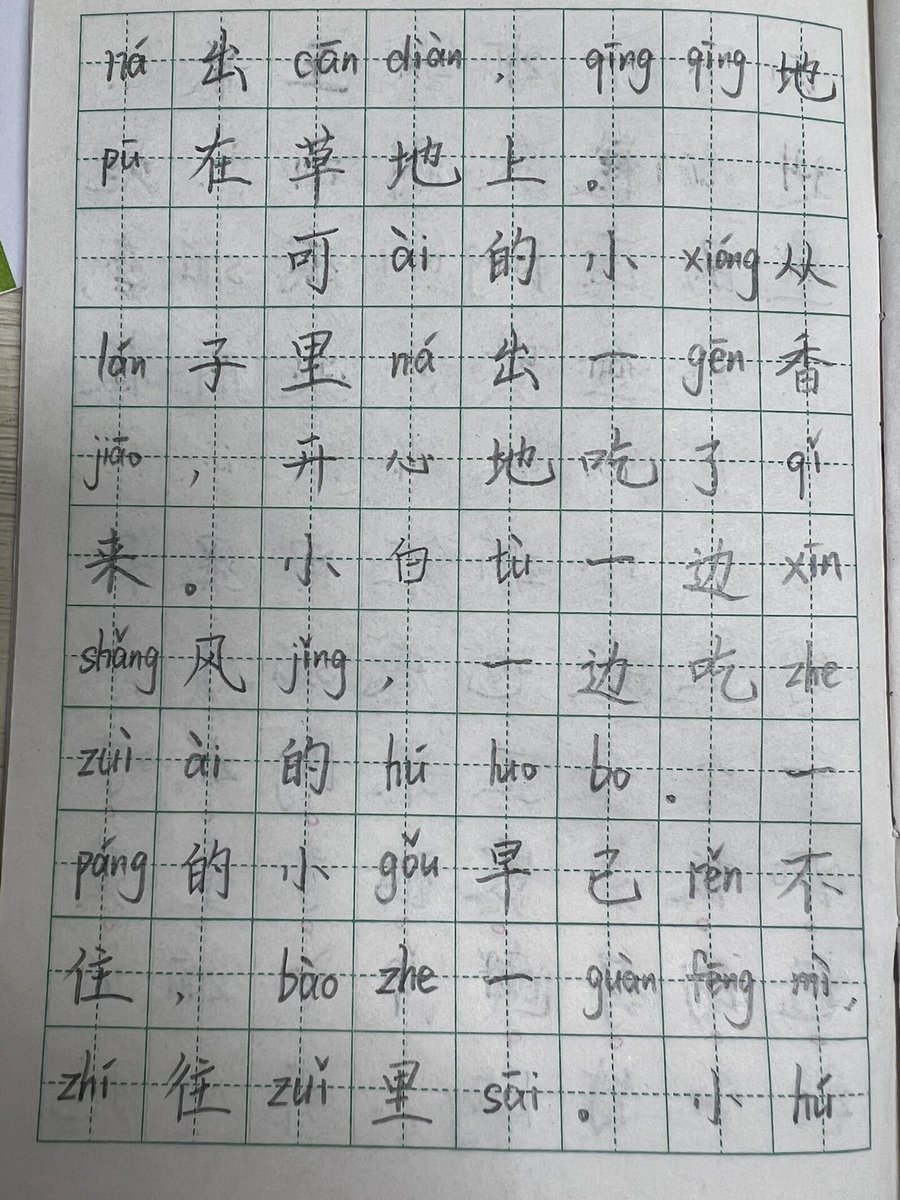 ná出cān diàn，qīng qīng地
pū在草地上。
可ài的小xióng从
lán子里ná出一gēn香
jiāo，开心地吃了qǐ
来。小白tù一边xīn
shǎng风jǐng，一边吃zhe
zuì ài的hú luo bo。一
páng的小gǒu早已rěn不
住，bào zhe一guàn fēng mì，
zhí往zuǐ里sāi。小hú